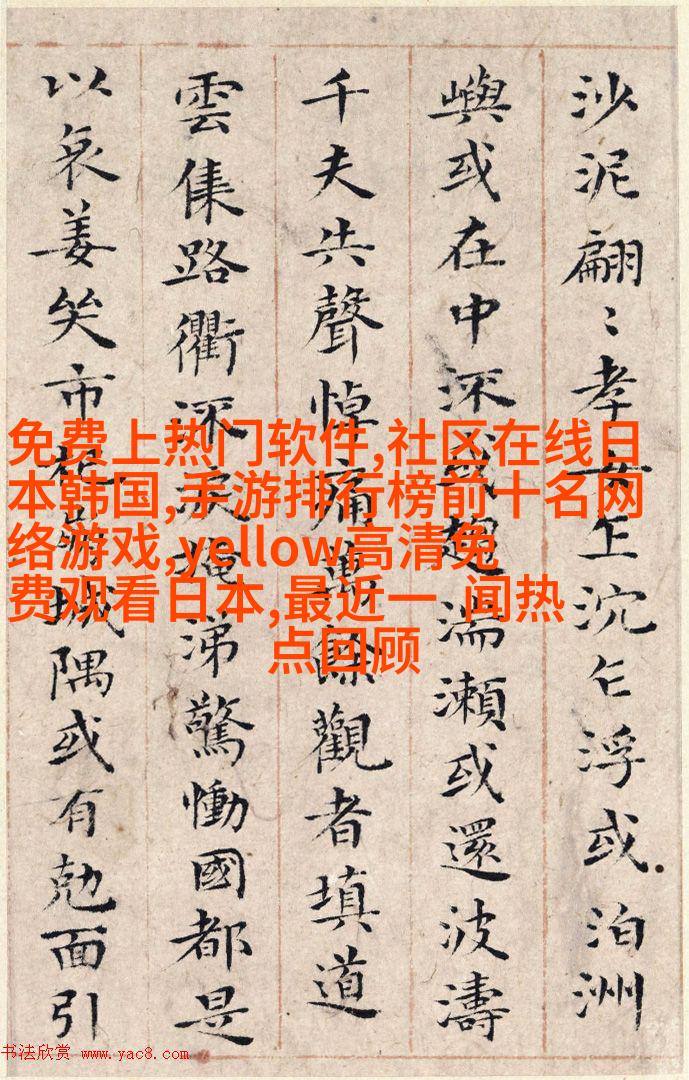 沙泥翩〻孝女乍沉乍浮或泊洲
嶼或在中流或趨湍瀨或還波濤
千夫共聲悼痛萬餘觀者填道
雲集路衢流淚掩涕驚慟國都是
以哀姜哭市杞崩城隅或有尅面引
免费上热门软件,社区在线日
本韩国,手游排行榜前十名网
络游戏,yellow高清免
费观看日本,最近一 闻热
点回顾
书法欣赏 www.yac8.com